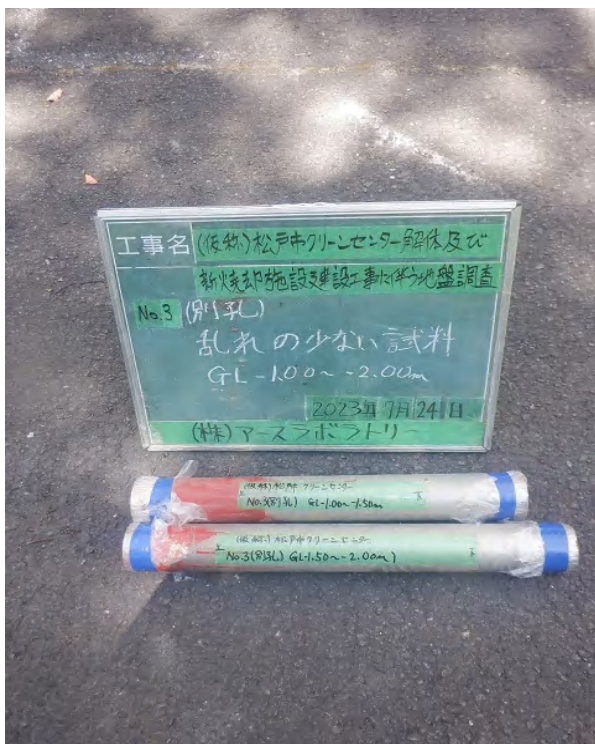 工事名 (仮称)松戸市クリーンセンター解体及び
新焼却施設建設工事に伴う地盤調査
No.3 (別孔)
乱れの少ない試料
GL-1.00~-2.00m
2023年7月24日
(株)アースラボラトリー
(仮称)松戸市クリーンセンター
No.3(別孔) GL-1.00~-1.50m
上
下
(仮称)松戸市クリーンセンター
No.3(別孔) GL-1.50~-2.00m)
上
下